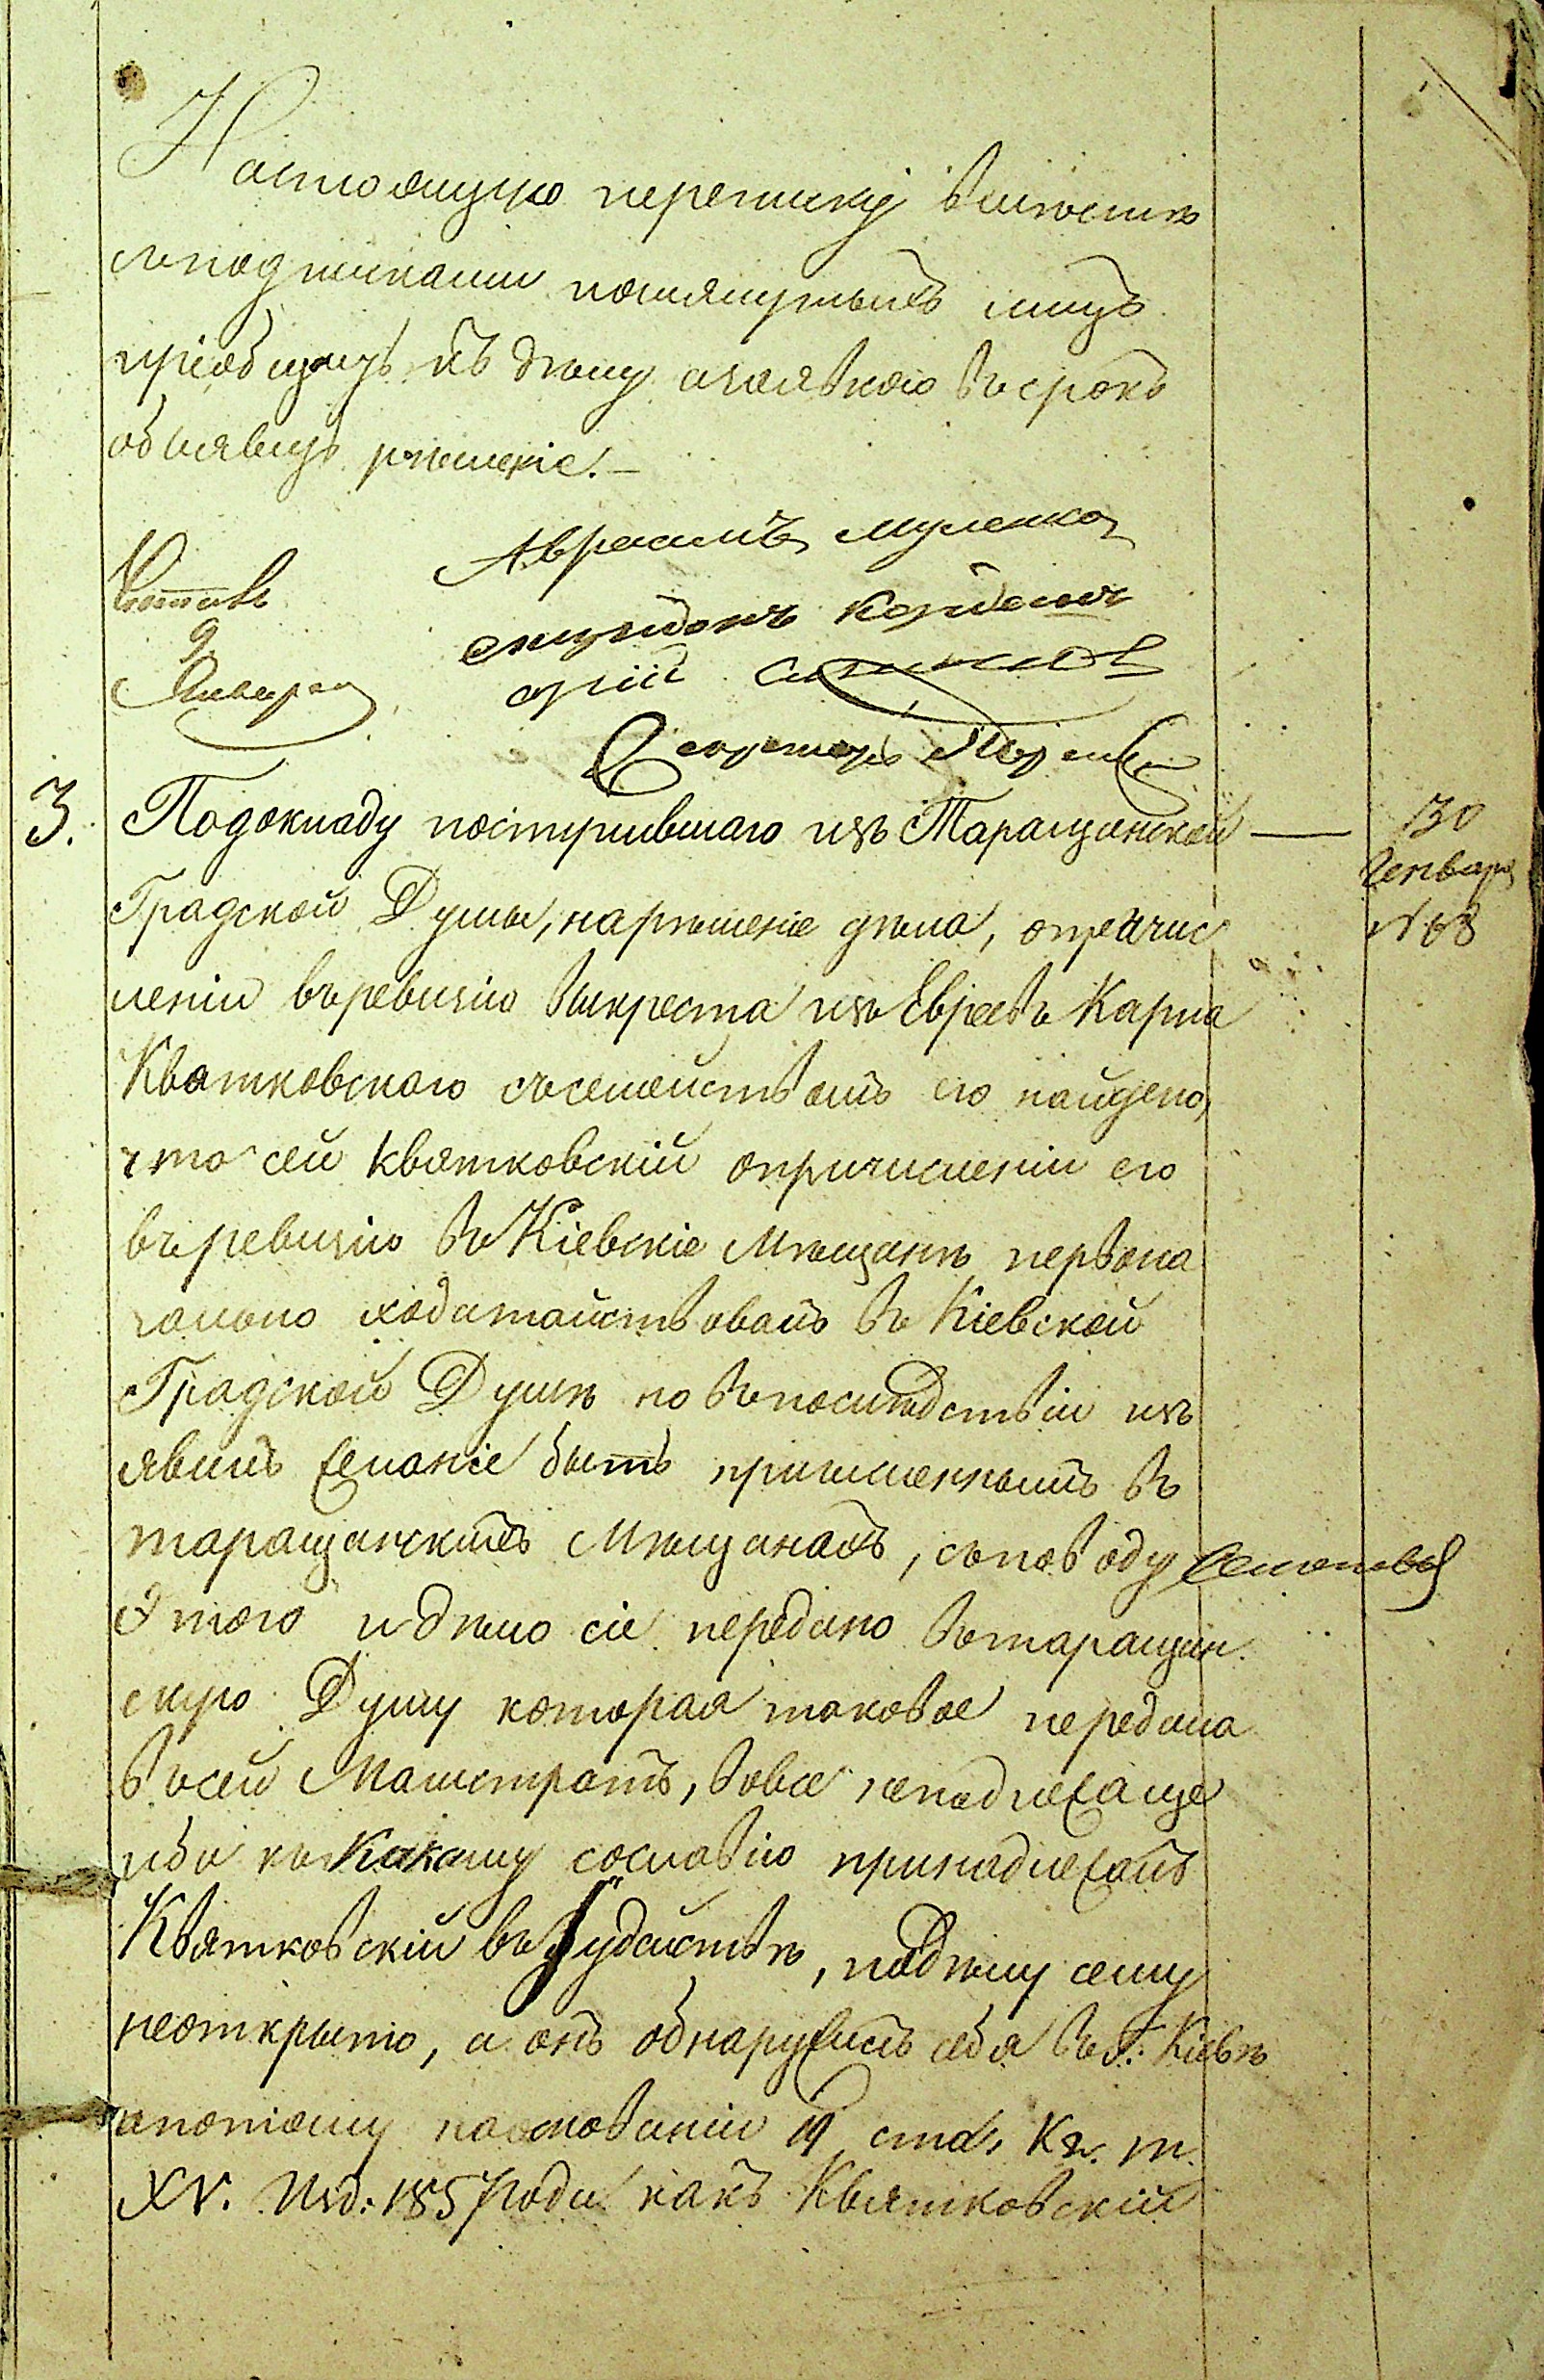 Настоящую переписку вместе
съподписками помянутыхъ лицъ
пріобщить къ делу акоявкою въсрокъ
объявить решеніе.—
Авраамъ
9
Января
Секретарь
3. Подокладу поступившаго изъ Таращанской — 30
Градской Думы, нарѣшеніе дѣла, опричис Генваря
леніи въревизію выкреста изъ Евреевъ Карпа №68
Квятковского съсемействомъ его найдено,
что сей Квятковскій опричисленіи его
въревизію въ Кіевскіе Мѣщане первона
чально ходатайствовалъ въ Кіевской
Градской Думѣ но въпослѣдствіи изъ
явилъ желаніе быть причисленнымъ въ
таращанскихъ Мѣщанахъ, съповоду
Этого идѣло сіе передано вътаращан.
скую Думу которая таковое передала
Въсей Магистратъ, вовсе неподлежаще
ибо къкакому сословію принадлежалъ
Квятковскій въІудействѣ, подѣлу сему
неоткрыто, а онъ обнаружилъ себя въг. Кіевѣ
апотому наоснованіи 19 ста. Кн. т.
XV. Изд: 1857 года какъ Квятковскій